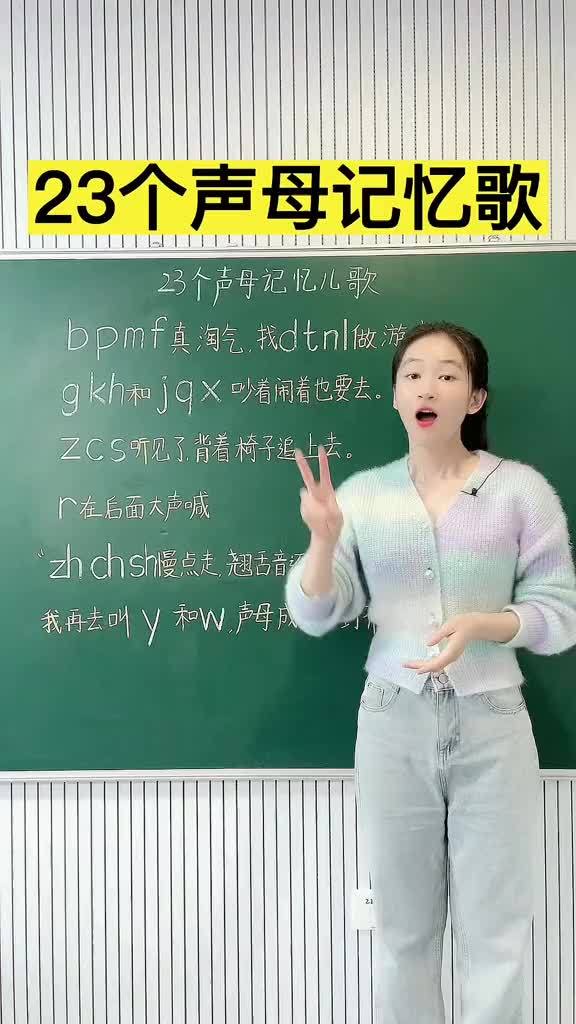 23个声母记忆歌
23个声母记忆儿歌
bpmf真淘气,找dtnl做游
gkh和jqx吵着闹着也要去。
zcs听见了,背着椅子追上去。
r在后面大声喊
“zh ch sh慢点走,翘舌音
我再去叫y和w,声母成